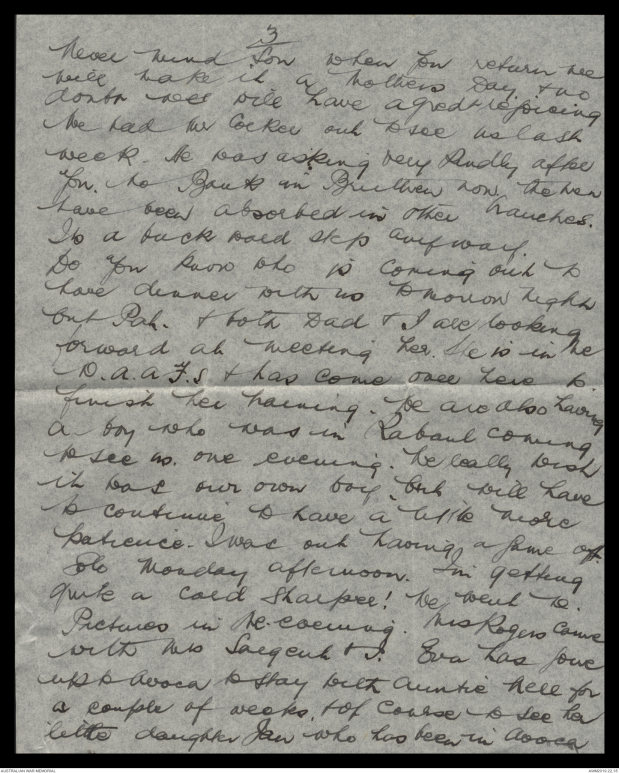 3
Never mind Son when you return we
will make it a Mothers Day, & no
doubt well will have a great rejoicing
We had Mr Cocker out to see us last
week. He was asking very kindly after
you. No Bank in Bruthen now, the men
have been absorbed in other branches.
Its a back ward step anyway.
Do you know who is coming out to
have dinner with us tomorrow night
but Pat. & both Dad & I are looking
forward at meeting her. She is in the
W.A.A.F.S & has come over here to
finish her training. We are also having
a boy who was in Rabaul coming
to see us. one evening. We really wish
it was our own boy, but will have
to continue to have a little more
patience. I was out having a game of
Solo Monday afternoon. I'm getting
quite a card sharper! We went to
Pictures in the evening. Mrs Rogers came
with Mrs Sargent & I. Eva has gone
up to Avoca to stay with Auntie Nell for
a couple of weeks, & of course to see her
little daughter Jan who has been in Avoca
AUSTRALIAN WAR MEMORIAL